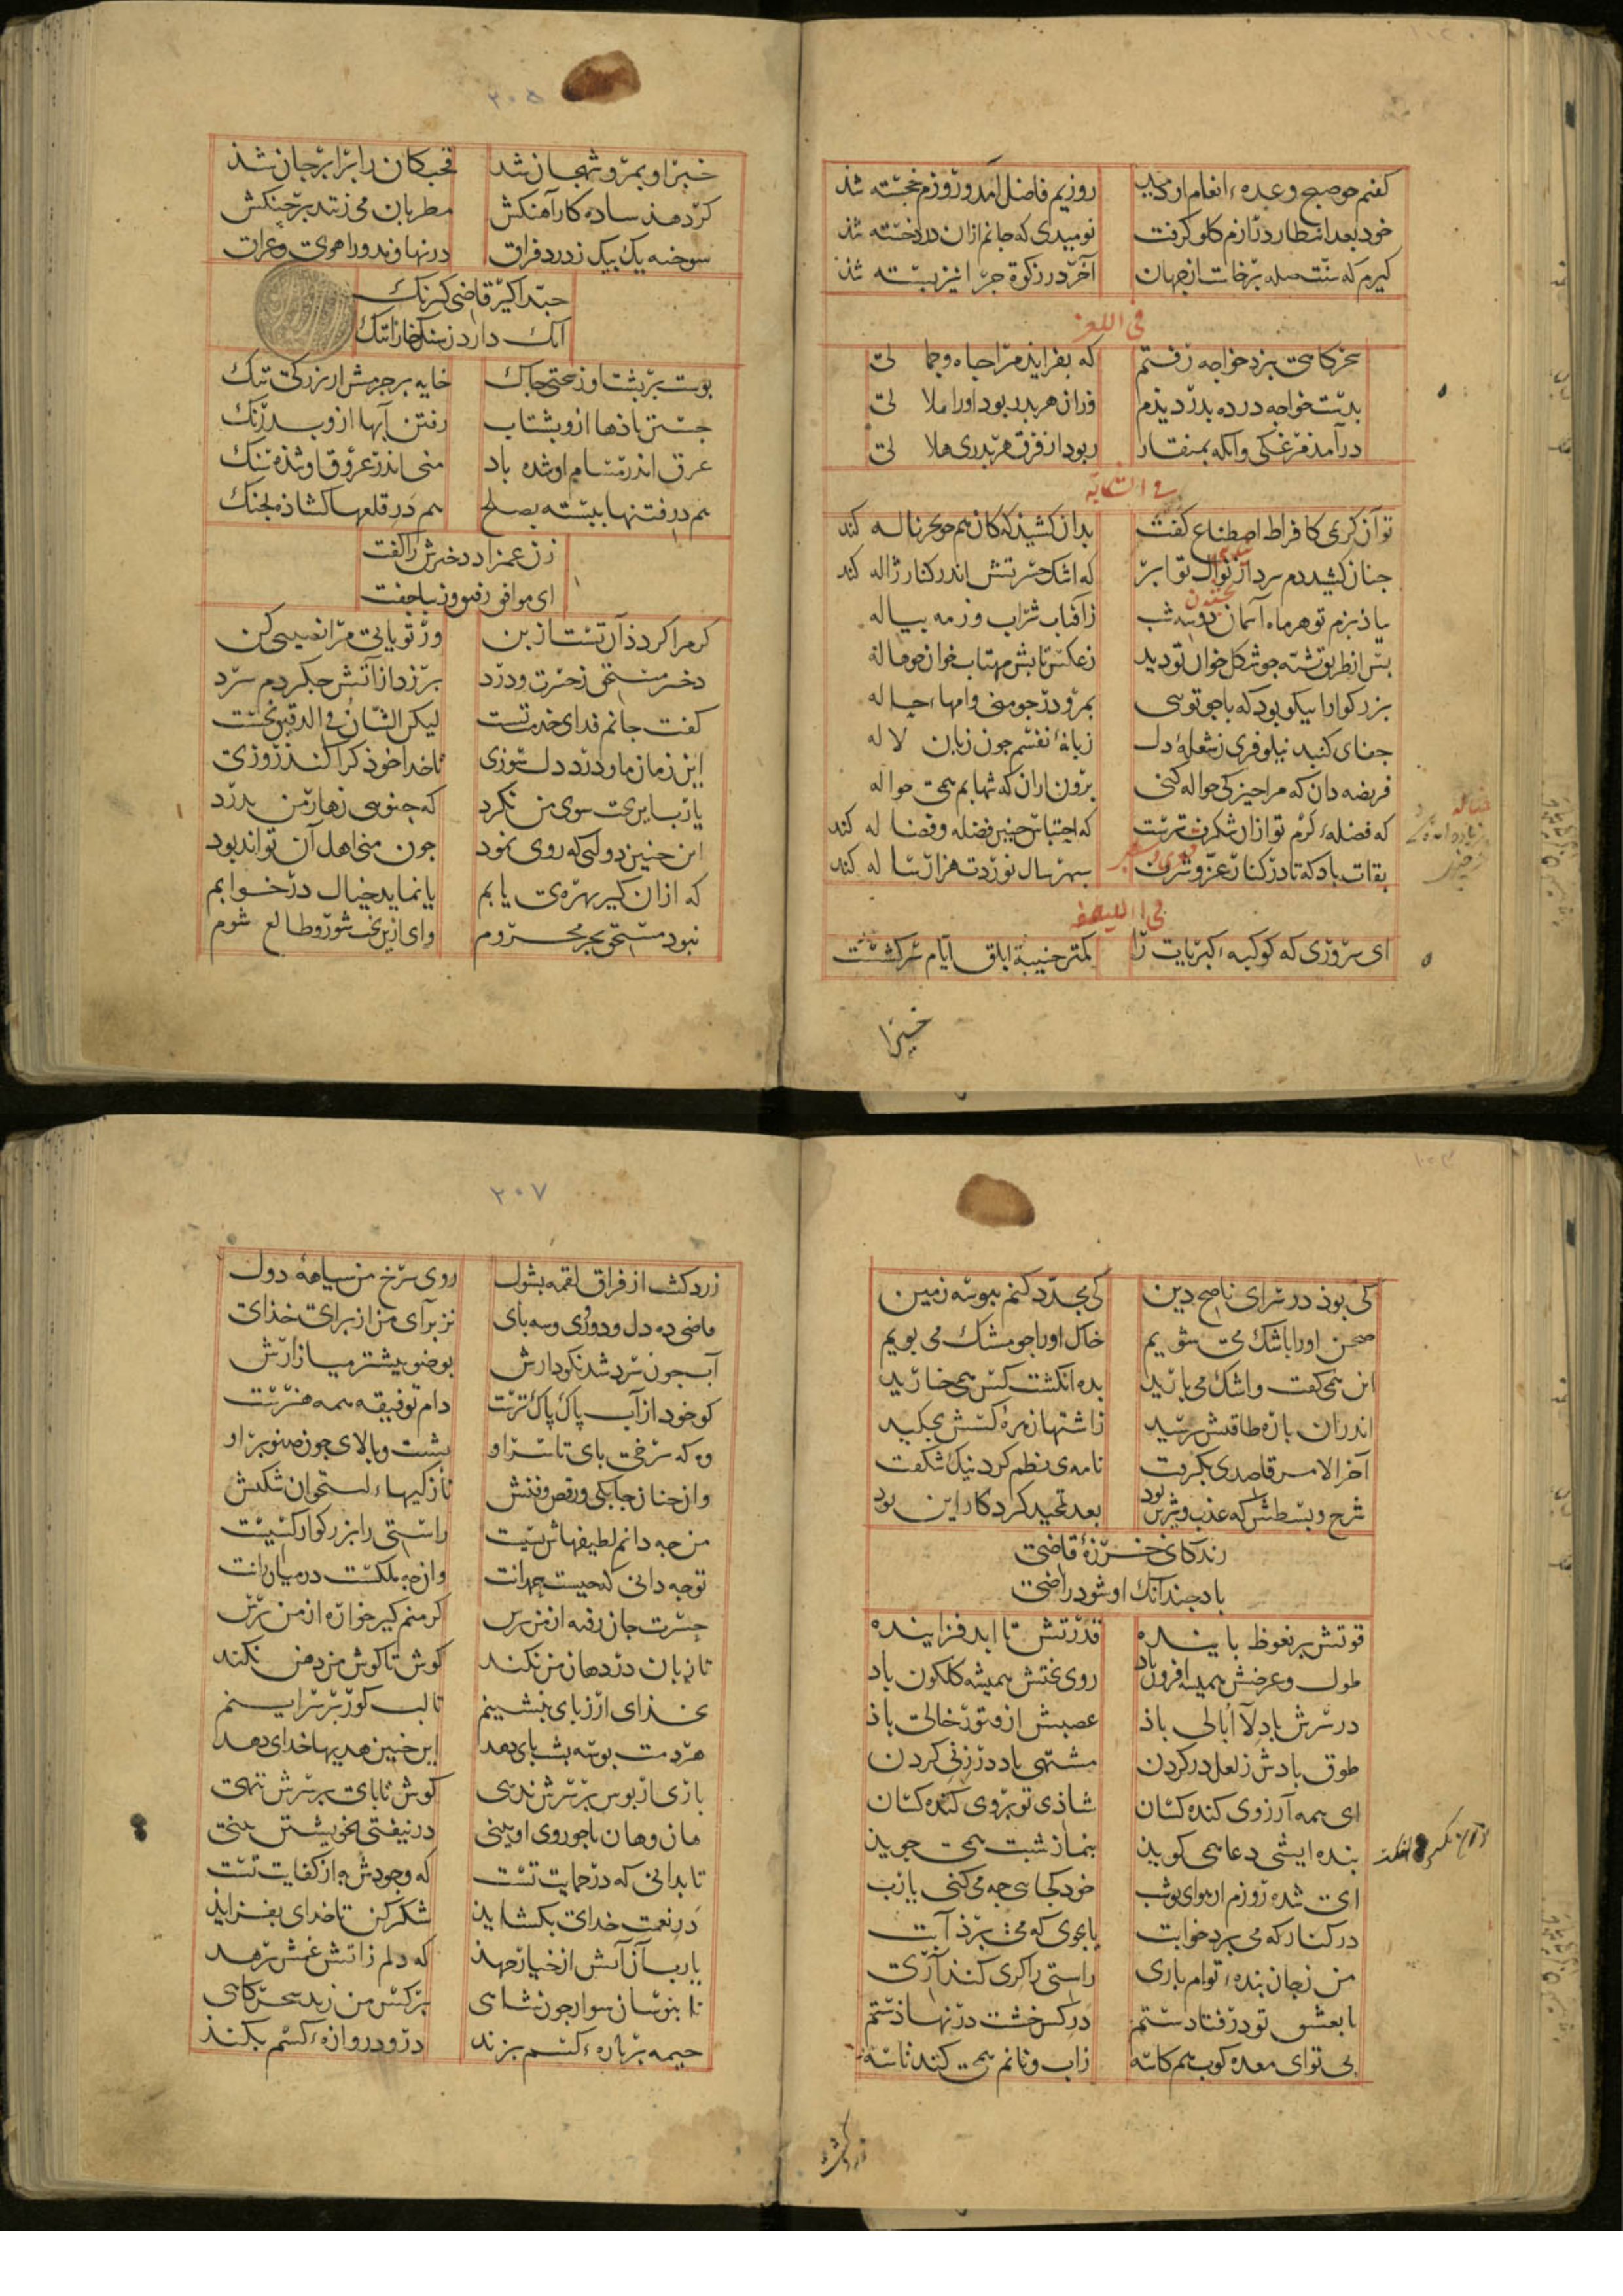 کفتم جو صبح وعده انعام او دمید روزیم فاضل آمد و روزم خجسته شد
خود بعد انتظار درازم کلو کرفت نومیدی که جانم ازان درد خسته شد
کیرم که سنت صله برخاست از جهان آخر در زکوة جرا نیز بسته شد
فی اللغز
سحرکاهی بنزد خواجه رفتم که بفزاید مرا جاه و جما لی
بدست خواجه در ده بدر دیدم وزان هر بدر بود اورا ملا لی
درآمد مرغکی وانکه بمنقار ربود از فرق هر بدری هلا لی
فی الشکایه
تو آن کریمی کافراط اصطناع کفت بدان کشید که کان همجو بحر ناله کند
جنان کشد دم سرد از نوال تو ابر که اشک حسرتش اندر کنار ژاله کند
بیاد بزم تو هر ماه آسمان دو سه شب زآفتاب شراب و زمه بیاله
بس از نظر تو تشنه جو شکل خوان تو دید زعکس تابش مهتاب خوان جو هاله
بزرکوارا نیکو بود که با جو تویی بمرو در جو منی وامهاء جاله
جفای کنبد نیلوفری زشعلهٔ دل زبانهٔ نفسم جون زبان لاله
فریضه دان که مرا جیزکی حواله کنی برون ازان که شهابم همی حواله
که فضله کرم تو ازان شکرف ترست که احتباس جنین فضله و فضاله کند
بقات باد که تا در کنار عز و شرف سبهر سال نوردت هزار ساله کند
ای سروری که کوکبه کبریات را کمتر جنیبة ابلق ایام سرکشست
خبزا
۲۰۵
خبر او بمرو شهجان شد قحبکان را برابر جان شد
کرد هذ ساده کار آهنکش مطربان می زنند بر جنکش
سوخته یک بیک زدرد فراق در نهاوند و راهوی و عراق
حبذا کیر قاضی کیرنک
آنک دارد زسنک خارا ننک
بوست بر بشت او زسختی جاک خایه بر جرمش از بزرکی تنک
جستن باذها ازو بشتاب رفتن آبها ازو بدرنک
عرق اندر مسام او شده باد منی اندر عروق او شذه سنک
هم در فتنها ببسته بصلح هم در قلعها کشاذه بجنک
زن عمزاد دخترش را کفت
ای موافق رفیق و زیبا جفت
کر مرا کرد ذآن تست از بن ور تو یابی مرا نصیبی کن
دختر مستحق زحسرت و درد برزد از آتش جکر دم سرد
کفت جانم فدای خدمت تست لیکن الشان فی الدقیق نخست
این زمان ما و درد و دل سوزی تا خدا خوذ کرا کند روزی
یا رب این بخت سوی من نکرد که جنویی زهار من بدرد
این جنین دولتی که روی نمود جون منی اهل آن تواند بود
که ازان کیر بهره‌ی یابم یا نماید خیال در خوابم
نبود مستحق بجز محروم وای ازین بخت شور و طالع شوم
کی بوذ در سرای ناصح دین کی مجدد کنم ببوسه زمین
صحن اورا باشک می شویم خاک اورا جو مشک می بویم
این همی کفت و اشک می بارید بده انکشت کس همی خارید
اندران باره طاقتش برسید زاشتها نزه کسش بجکید
آخر الامر قاصدی بکرفت نامه‌ی نظم کرد نیک شکفت
شرح و بسطش که عذب و شیرین بود بعد تمجید کردکار این بود
زندکانی خرزهٔ قاضی
باد جندانک او شود راضی
قوتش بر نعوظ باینده قدرتش تا ابد فزاینده
طول و عرضش همیشه افزون باد روی بختش همیشه کلکون باد
در سرش باد لا ابالی باذ عصبش از فتور خالی باذ
طوق بادش زلعل در کردن مشتهی باد در زنی کردن
ای همه آرزوی کنده کسان شاذی تو بروی کنده کسان
بنده ایشی دعا همی کوید بنماز شبت همی جوید
ای شده روزم از هوای تو شب خود کجایی جه می کنی یا رب
در کنار که می برد خوابت با بجوی که می برذ آبت
من زجان بنده توام باری راستی را کری کند آری
تا بعشق تو در فتادستم در کس خشت در نهاذستم
بی تو ای معده کوب هم کاسه زاب و نانم همی کند تاسه
زرد کشت
۲۰۷
زرد کشت از فراق لقمه بشول روی سرخ من سیاهه دول
قاضی ده دل و دوروی و سه بای نز برای من از برای خذای
آب جون سرد شد نکو دارش بوضو بیشتر میازارش
کو خود از آب باک باک ترست دام توفیقه همه هنرست
وه که سرخی بای تا سر او بشت و بالای جون صنوبر او
وان جنان جابکی و رقص و فنش نازکیها و استخوان شکنش
من جه دانم لطیفهاش بسیت راستی را بزرکوار کسیت
توجه دانی که جیست بهرانت وان جه ملکست در میان رانت
حسرت جان رفته از من برس کر منم کیرخواره از من برس
تا زبان در دهان من نکند کوش تا کوش من دهن نکند
بخدای ار زبای بنشینم تا لب کور بر سرا بینم
هر دمت بوسه بشبای دهد این جنین هدیها خدای دهد
بازی از بوس بر سرش ندهی کوش تا بای بر سرش ننهی
هان و هان تا جو روی او بینی در نیفتی بخویشتن بینی
تا بدانی که در حمایت تست که وجودش به از کفایت تست
در نعمت خدای بکشاید شکر کن تا خدای بفزاید
یا رب آن آتش از خیار جهد که دلم زاتش غمش برهد
تا بنوسان سوار جون شاهی بر کس من زند سحرکاهی
خیمه بر باره کسم بزند در و دروازه کسم بکند